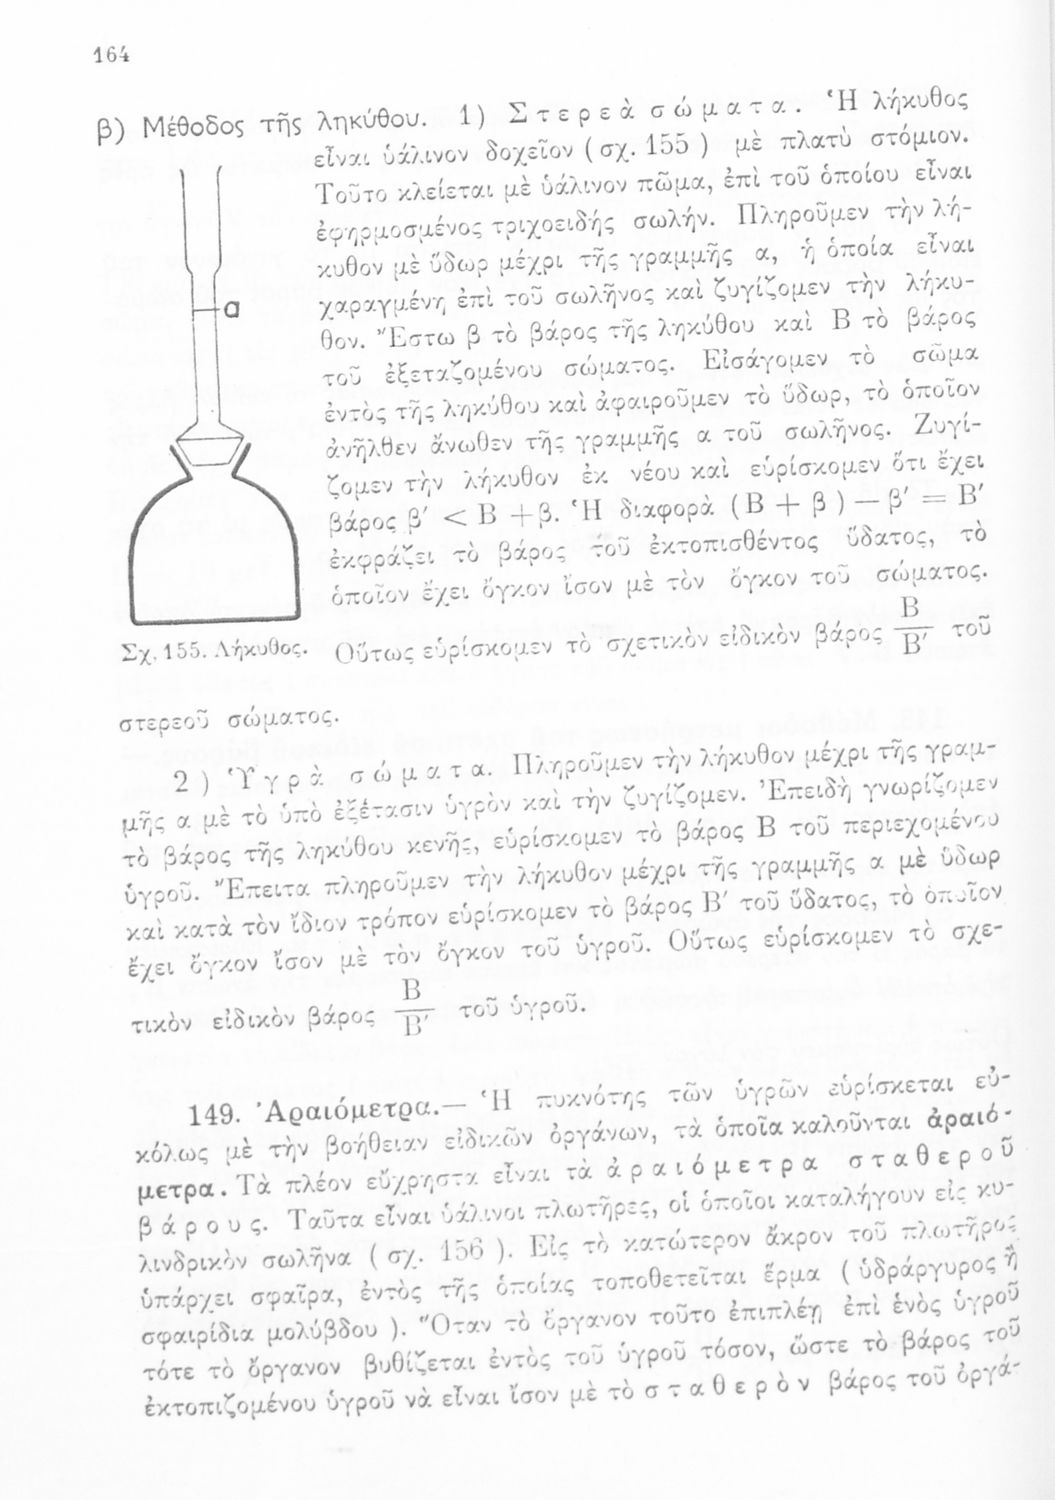 164
β) Μέθοδος τῆς ληκύθου. 1) Στερεὰ σώματα. Ἡ λήκυθος
εἶναι ὑάλινον δοχεῖον (σχ. 155) μὲ πλατὺ στόμιον.
Τοῦτο κλείεται μὲ ὑάλινον πῶμα, ἐπὶ τοῦ ὁποίου εἶναι
ἐφηρμοσμένος τριχοειδής σωλήν. Πληροῦμεν τὴν λή-
κυθον μὲ ὕδωρ μέχρι τῆς γραμμῆς α, ἡ ὁποία εἶναι
χαραγμένη ἐπὶ τοῦ σωλῆνος καὶ ζυγίζομεν τὴν λήκυ-
θον. Ἔστω β τὸ βάρος τῆς ληκύθου καὶ Β τὸ βάρος
τοῦ ἐξεταζομένου σώματος. Εἰσάγομεν τὸ σῶμα
ἐντὸς τῆς ληκύθου καὶ ἀφαιροῦμεν τὸ ὕδωρ, τὸ ὁποῖον
ἀνῆλθεν ἄνωθεν τῆς γραμμῆς α τοῦ σωλῆνος. Ζυγί-
ζομεν τὴν λήκυθον ἐκ νέου καὶ εὑρίσκομεν ὅτι ἔχει
βάρος β′ < Β + β. Ἡ διαφορὰ (Β + β) — β′ = Β′
ἐκφράζει τὸ βάρος τοῦ ἐκτοπισθέντος ὕδατος, τὸ
ὁποῖον ἔχει ὄγκον ἴσον μὲ τὸν ὄγκον τοῦ σώματος.
Οὕτως εὑρίσκομεν τὸ σχετικὸν εἰδικὸν βάρος Β/Β′ τοῦ
a
Σχ. 155. Λήκυθος.
στερεοῦ σώματος.
2) Ὑγρὰ σώματα. Πληροῦμεν τὴν λήκυθον μέχρι τῆς γραμ-
μῆς α μὲ τὸ ὑπὸ ἐξέτασιν ὑγρὸν καὶ τὴν ζυγίζομεν. Ἐπειδὴ γνωρίζομεν
τὸ βάρος τῆς ληκύθου κενῆς, εὑρίσκομεν τὸ βάρος Β τοῦ περιεχομένου
ὑγροῦ. Ἔπειτα πληροῦμεν τὴν λήκυθον μέχρι τῆς γραμμῆς α μὲ ὕδωρ
καὶ κατὰ τὸν ἴδιον τρόπον εὑρίσκομεν τὸ βάρος Β′ τοῦ ὕδατος, τὸ ὁποῖον
ἔχει ὄγκον ἴσον μὲ τὸν ὄγκον τοῦ ὑγροῦ. Οὕτως εὑρίσκομεν τὸ σχε-
τικὸν εἰδικὸν βάρος Β/Β′ τοῦ ὑγροῦ.
149. Ἀραιόμετρα.— Ἡ πυκνότης τῶν ὑγρῶν εὑρίσκεται εὐ-
κόλως μὲ τὴν βοήθειαν εἰδικῶν ὀργάνων, τὰ ὁποῖα καλοῦνται ἀραιό-
μετρα. Τὰ πλέον εὔχρηστα εἶναι τὰ ἀραιόμετρα σταθεροῦ
βάρους. Ταῦτα εἶναι ὑάλινοι πλωτῆρες, οἱ ὁποῖοι καταλήγουν εἰς κυ-
λινδρικὸν σωλῆνα (σχ. 156). Εἰς τὸ κατώτερον ἄκρον τοῦ πλωτῆρος
ὑπάρχει σφαῖρα, ἐντὸς τῆς ὁποίας τοποθετεῖται ἕρμα (ὑδράργυρος ἢ
σφαιρίδια μολύβδου). Ὅταν τὸ ὄργανον τοῦτο ἐπιπλέῃ ἐπὶ ἑνὸς ὑγροῦ
τότε τὸ ὄργανον βυθίζεται ἐντὸς τοῦ ὑγροῦ τόσον, ὥστε τὸ βάρος τοῦ
ἐκτοπιζομένου ὑγροῦ νὰ εἶναι ἴσον μὲ τὸ σταθερὸν βάρος τοῦ ὀργά-